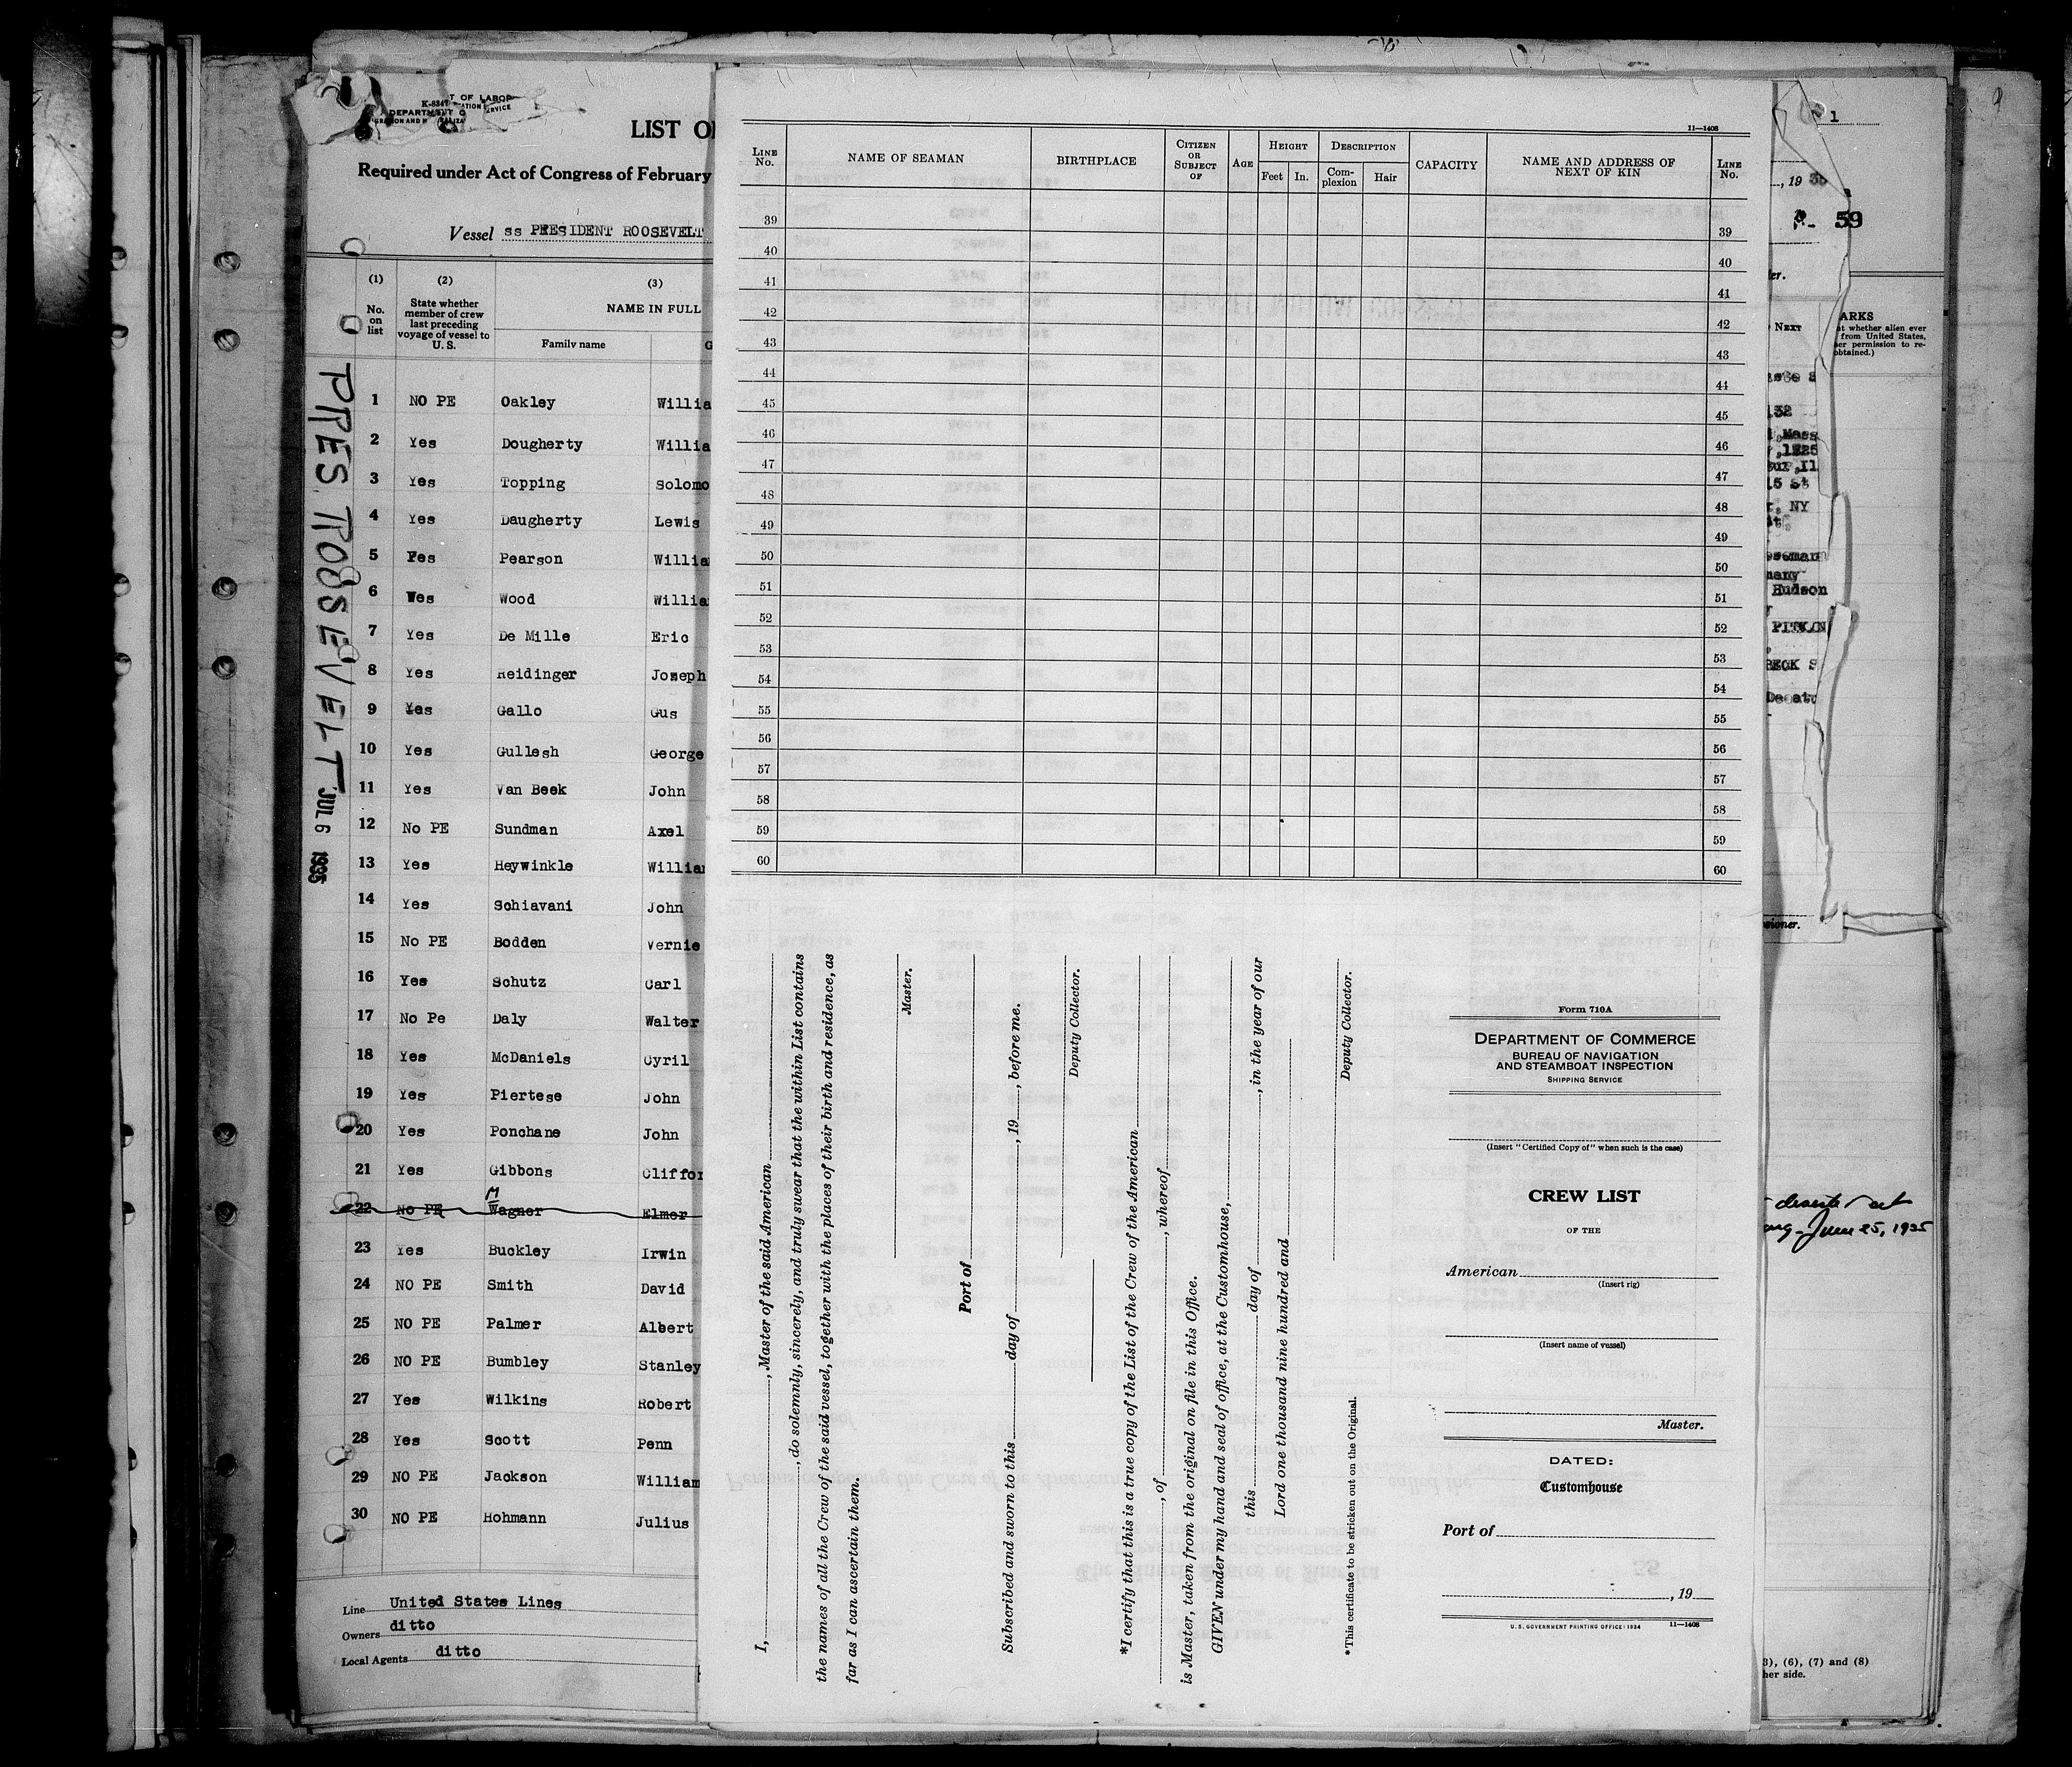 K-8347
T OF LABOR
DEPARTMENT O
LIST O
Required under Act of Congress of February
Vessel ss PRESIDENT ROOSEVELT
(1) (2) (3)
No. on list
State whether member of crew last preceding voyage of vessel to U. S.
NAME IN FULL
Family name G
1 NO PE Oakley Willia
2 Yes Dougherty Willia
3 Yes Topping Solomo
4 Yes Daugherty Lewis
5 Yes Pearson Willia
6 Yes Wood Willia
7 Yes De Mille Eric
8 Yes Heidinger Joseph
9 Yes Gallo Gus
10 Yes Gullesh George
11 Yes Van Beek John
12 No PE Sundman Axel
13 Yes Heywinkle Willia
14 Yes Schiavani John
15 No PE Bodden Vernie
16 Yes Schutz Carl
17 No Pe Daly Walter
18 Yes McDaniels Cyril
19 Yes Piertese John
20 Yes Ponchane John
21 Yes Gibbons Cliffor
M
22 No PE Wagner Elmer
23 Yes Buckley Irwin
24 NO PE Smith David
25 NO PE Palmer Albert
26 NO PE Bumbley Stanley
27 Yes Wilkins Robert
28 Yes Scott Penn
29 NO PE Jackson William
30 NO PE Hohmann Julius
Line United States Lines
Owners ditto
Local Agents ditto
PRES ROOSEVELT JUL 6 1935
11—1408
LINE No.
NAME OF SEAMAN
BIRTHPLACE
CITIZEN OR SUBJECT OF
AGE
HEIGHT
Feet In.
DESCRIPTION
Complexion Hair
CAPACITY
NAME AND ADDRESS OF NEXT OF KIN
LINE No.
39 39
40 40
41 41
42 42
43 43
44 44
45 45
46 46
47 47
48 48
49 49
50 50
51 51
52 52
53 53
54 54
55 55
56 56
57 57
58 58
59 59
60 60
I, , Master of the said American
, do solemnly, sincerely, and truly swear that the within List contains
the names of all the Crew of the said vessel, together with the places of their birth and residence, as
far as I can ascertain them.
Master.
Port of
Subscribed and sworn to this day of , 19 , before me.
Deputy Collector.
*I certify that this is a true copy of the List of the Crew of the American
, of , whereof
is Master, taken from the original on file in this Office.
GIVEN under my hand and seal of office, at the Customhouse,
this day of , in the year of our
Lord one thousand nine hundred and
Deputy Collector.
*This certificate to be stricken out on the Original.
Form 710A
DEPARTMENT OF COMMERCE
BUREAU OF NAVIGATION
AND STEAMBOAT INSPECTION
SHIPPING SERVICE
(Insert "Certified Copy of" when such is the case)
CREW LIST
OF THE
American
(Insert rig)
(Insert name of vessel)
Master.
DATED:
Customhouse
Port of
, 19
U. S. GOVERNMENT PRINTING OFFICE: 1934 11—1408
1
, 19 35
59
NEXT
ARKS
at whether alien ever
from United States,
er permission to re-
obtained.)
132
, Mass
15 St
, NY
many
Hudson
PITKIN
BECK S
Decatu
sioner.
deserter at
June 25, 1935
3), (6), (7) and (8)
her side.